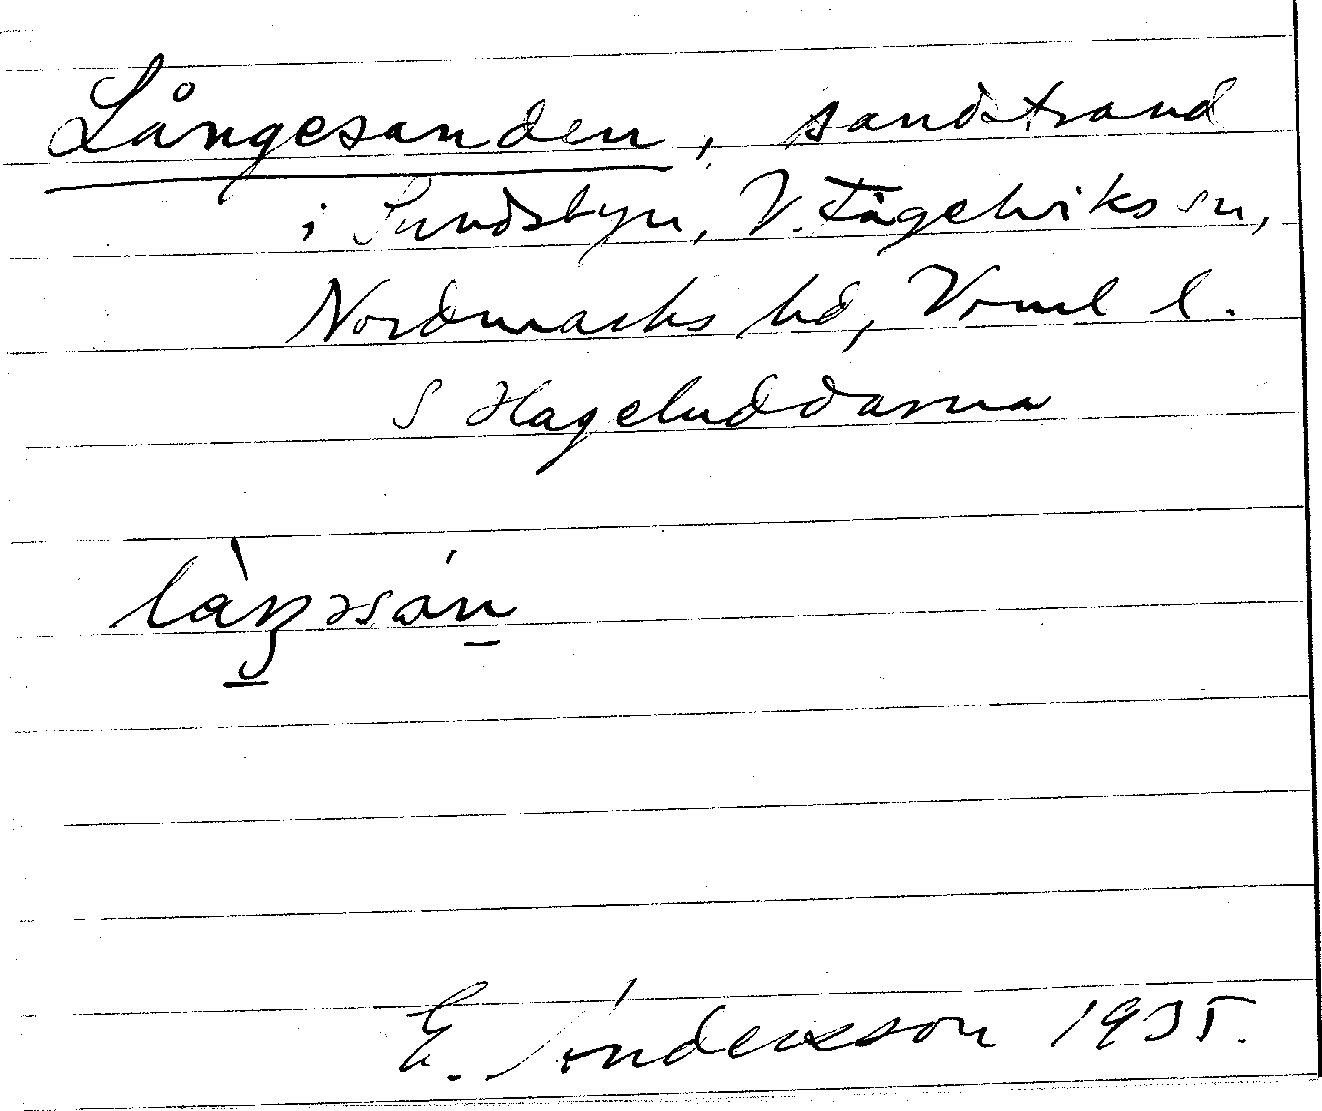 Långesanden, sandstrand
i Sundsbyn, V. Fågelviks sn,
Nordmarks hd, Vrml l.
S Hageluddarna
E. Andersson 1935.